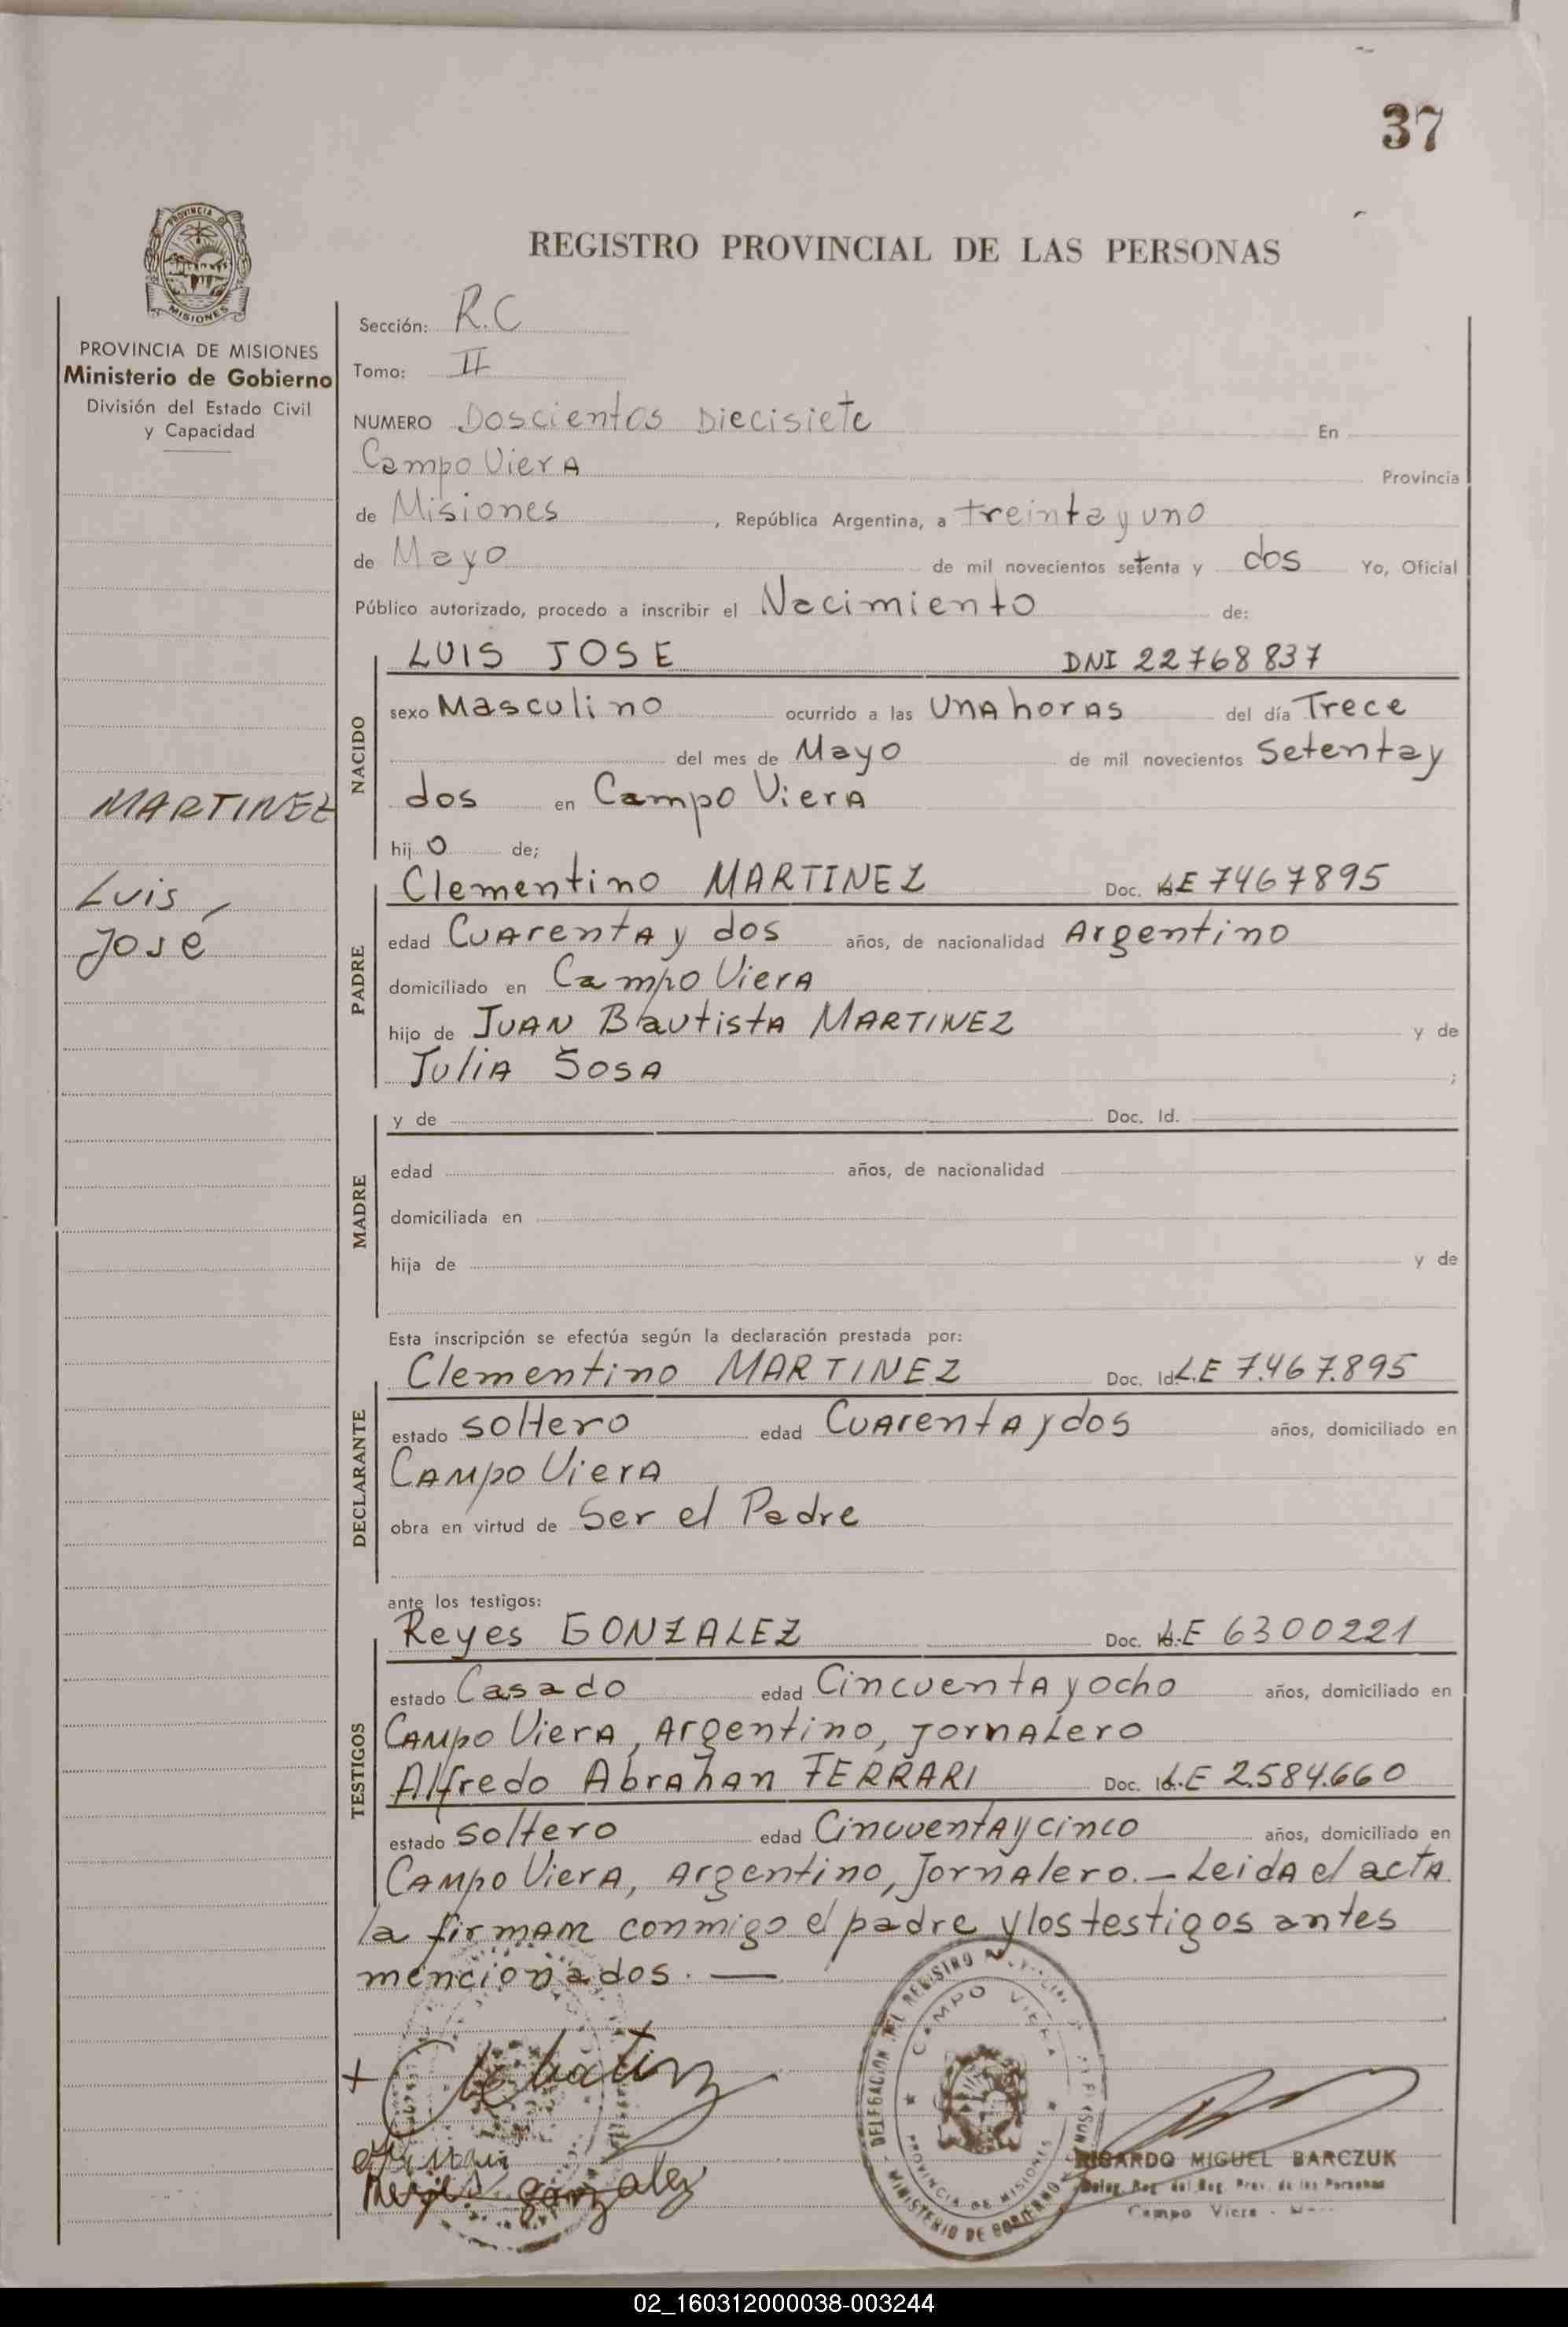 37
PROVINCIA DE
MISIONES
PROVINCIA DE MISIONES
Ministerio de Gobierno
División del Estado Civil
y Capacidad
MARTINEZ
Luis
José
REGISTRO PROVINCIAL DE LAS PERSONAS
Sección: R.C
Tomo: II
NUMERO Doscientos Diecisiete En
Campo Viera Provincia
de Misiones, República Argentina, a treinta y uno
de Mayo de mil novecientos setenta y dos Yo, Oficial
Público autorizado, procedo a inscribir el Nacimiento de:
NACIDO
LUIS JOSE DNI 22768837
sexo Masculino ocurrido a las Una horas del día Trece
del mes de Mayo de mil novecientos Setenta y
dos en Campo Viera
hijo de;
PADRE
Clementino MARTINEZ Doc. LE 7467895
edad Cuarenta y dos años, de nacionalidad Argentino
domiciliado en Campo Viera
hijo de Juan Bautista MARTINEZ y de
Julia Sosa ;
MADRE
y de Doc. Id.
edad años, de nacionalidad
domiciliada en
hija de y de
Esta inscripción se efectúa según la declaración prestada por:
DECLARANTE
Clementino MARTINEZ Doc. Id. L.E 7.467.895
estado soltero edad Cuarenta y dos años, domiciliado en
Campo Viera
obra en virtud de Ser el Padre
ante los testigos:
TESTIGOS
Reyes GONZALEZ Doc. L.E 6300221
estado Casado edad Cincuenta y ocho años, domiciliado en
Campo Viera, Argentino, Jornalero
Alfredo Abrahan FERRARI Doc. Id. L.E 2.584.660
estado soltero edad Cincuenta y cinco años, domiciliado en
Campo Viera, Argentino, Jornalero.- Leida el acta
la firman conmigo el padre y los testigos antes
mencionados. —
Reyes Gonzalez
DELEGACION DEL REGISTRO
CAMPO VIERA
PROVINCIA DE MISIONES
MINISTERIO DE GOBIERNO
RICARDO MIGUEL BARCZUK
Deleg. Reg. del Reg. Prov. de las Personas
Campo Viera
02_160312000038-003244